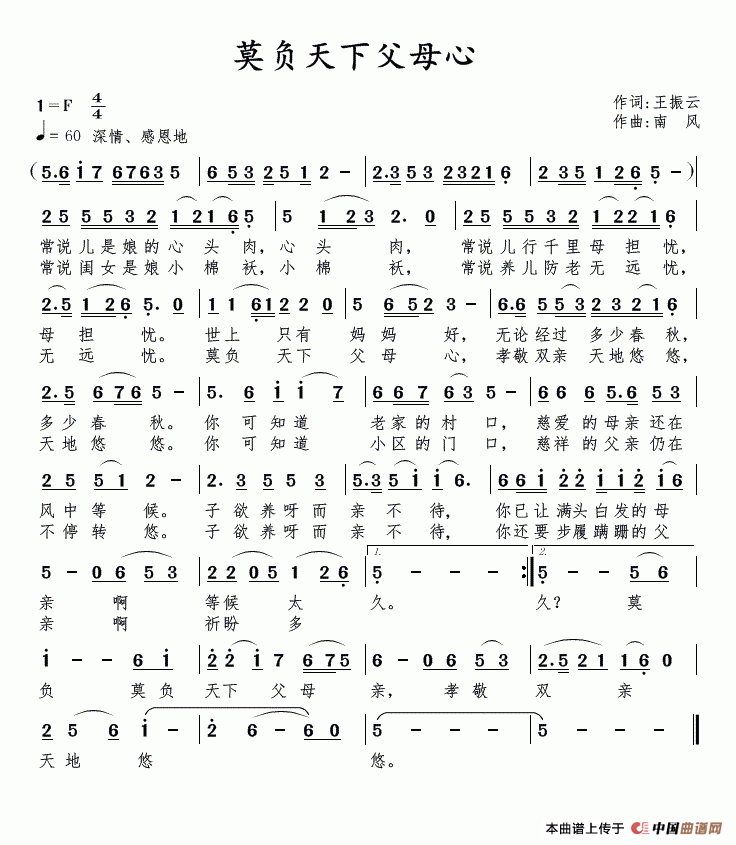 莫负天下父母心
1=F 4/4
作词:王振云
♩= 60 深情、感恩地
作曲:南 风
(5.6 i 7 6763 5 | 6 53 251 2 - | 2.3 53 2321 6 | 2 35 126 5 - )
25 5532 1216 5 | 5 1 23 2. 0 | 25 5535 2216 5
常说儿是娘的心 头 肉,心 头 肉, 常说儿行千里母 担 忧,
常说闺女是娘小 棉 袄,小 棉 袄, 常说养儿防老无 远 忧,
2.5 126 5. 0 | 11 61 22 0 | 5 652 3 - | 6.6 553 2235 5
母 担 忧。 世上 只有 妈妈 好, 无论经过 多少春秋,
无 远 忧。 莫负 天下 父 母 心, 孝敬双亲 天地悠悠,
2.5 676 5 - | 5. 6 i i 7 | 66 7 63 5 | 66 6 5.6 53
多少春 秋。你 可知道 老家的村 口, 慈爱的母亲还在
天地悠 悠。你 可知道 小区的门 口, 慈祥的父亲仍在
25 51 2 - | 5.5 22 5 2 | 5.5 i i 6. | 66i 22 i i2 i6
风中等 候。 子欲养呀而 亲 不待, 你已让满头白发的母
不停转 悠。 子欲养呀而 亲 不待, 你还要步履蹒跚的父
5 - 06 53 | 22 05 1 26 | 1. 5 - - - :| 2. 5 - - 56
亲 啊 等候 太 久。 久? 莫
亲 啊 祈盼 多
i - - 6 i | 22 i7 675 | 6 - 06 53 | 2.5 21 16 0
负 莫负 天下 父母 亲, 孝敬 双 亲
2 5 6 i - | 2 6 - 60 | 5 - - - | 5 - - -
天地 悠 悠。
本曲谱上传于 中国曲谱网